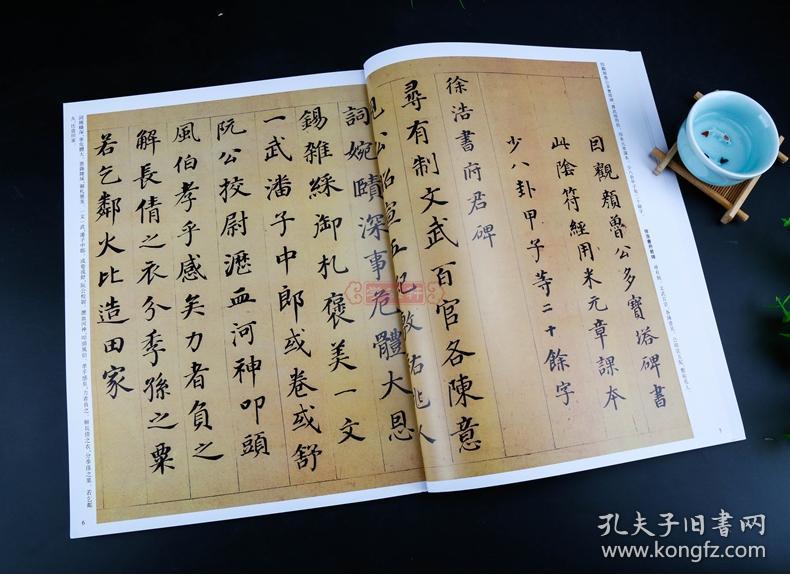 因觀顏魯公多寶塔碑書
此陰符經用米元章課本
少八卦甲子等二十餘字
徐浩書府君碑
尋有制文武百官各陳意
五紀敷右兆人
詞婉賾深事危體大恩
錫雜綵御札褒美一文
一武潘子中郎或卷或舒
阮公挍尉灑血河神叩頭
風伯孝乎感矣力者負之
解長倩之衣分季孫之粟
若乞鄰火比造田家
徐浩書府君碑
火，比造田家。
6
7
孔夫子旧书网
www.kongfz.com